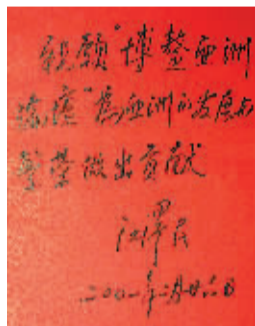 祝愿“博鳌亚洲
论坛”为亚洲的发展与
繁荣做出贡献
江泽民
二〇〇一年二月廿六日